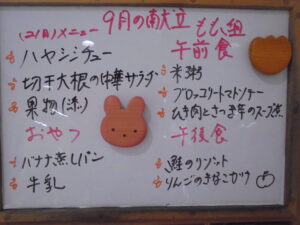 9月の献立
(2(月)メニュー
ハヤシシチュー
切干大根の中華サラダ
果物(添)
おやつ
バナナ蒸しパン
牛乳
もも組
午前食
米粥
ブロッコリートマトソテー
むき肉とさつま芋のスープ煮
午後食
鮭のリゾット
りんごのきなこかけ